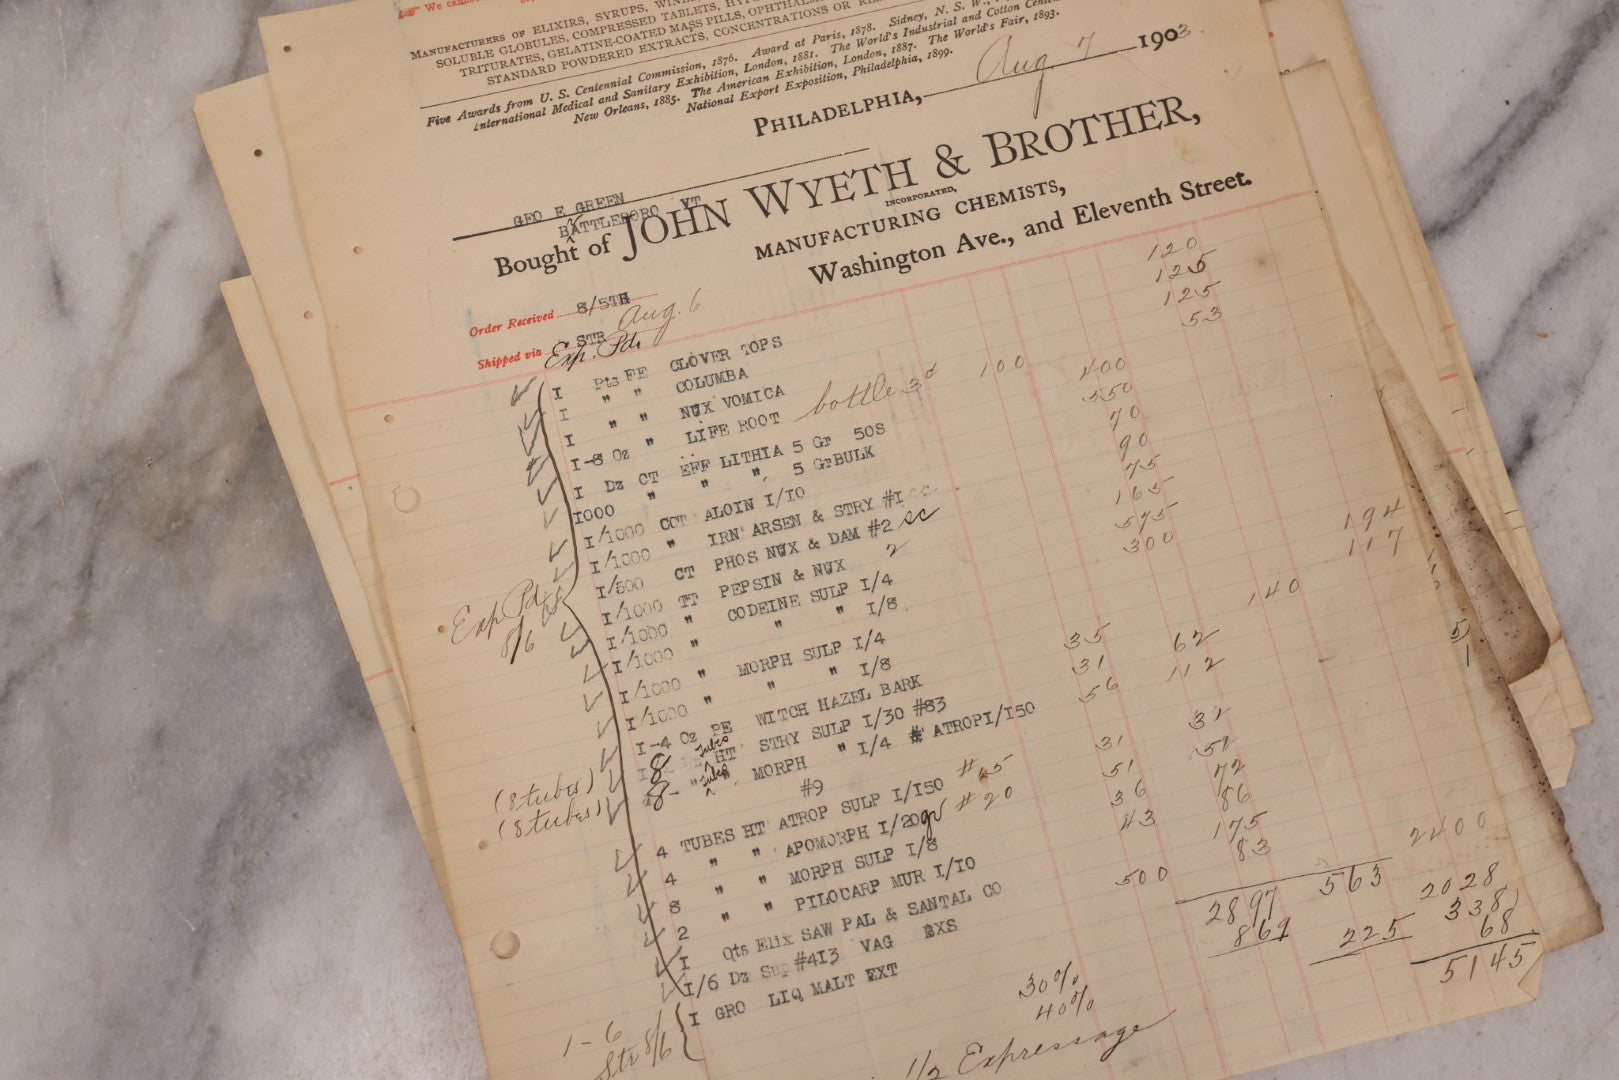 We cannot
MANUFACTURERS OF ELIXIRS, SYRUPS, WINES,
SOLUBLE GLOBULES, COMPRESSED TABLETS,
TRITURATES, GELATINE-COATED MASS PILLS,
STANDARD POWDERED EXTRACTS, CONCENTRATIONS OR
Five Awards from U. S. Centennial Commission, 1876. Award at Paris, 1878. Sidney, N. S. W.,
International Medical and Sanitary Exhibition, London, 1881. The World's Industrial and Cotton
New Orleans, 1885. The American Exhibition, London, 1887. The World's Fair, 1893.
National Export Exposition, Philadelphia, 1899.
PHILADELPHIA, Aug 7 1903
GEO E GREEN
BATTLEBORO VT
Bought of JOHN WYETH & BROTHER,
INCORPORATED,
MANUFACTURING CHEMISTS,
Washington Ave., and Eleventh Street.
Order Received 8/5TH
Shipped via STR Aug. 6
Exp. Pd.
I Pts FE CLOVER TOPS 120
I " " COLUMBA 125
I " " NUX VOMICA 125
I-8 Oz " LIFE ROOT bottle 53
I Dz CT EFF LITHIA 5 Gr 50S 100 400
I000 " " " 5 GrBULK 550
I/1000 CCT ALOIN I/IO 70
I/1000 " IRN ARSEN & STRY #I cc 90
I/500 CT PHOS NUX & DAM #2 sc 75
I/1000 TT PEPSIN & NUX 2 165
I/1000 " CODEINE SULP I/4 575
I/1000 " " " I/8 300
I/1000 " MORPH SULP I/4 194
I/1000 " " " I/8 117
I-4 Oz PE WITCH HAZEL BARK 140
8 tubes HT STRY SULP I/30 #83 35 62
8 - " tubes " MORPH " I/4 # ATROPI/I50 31 112
#9 56
4 TUBES HT ATROP SULP I/I50 #15 31 32
4 " " APOMORPH I/20 gr #20 51 52
8 " " MORPH SULP I/8 36 72
2 " " PILOCARP MUR I/IO 43 86
I Qts Elix SAW PAL & SANTAL CO 175
I/6 Dz Sup #4I3 VAG BXS 500 83
I GRO LIQ MALT EXT 2400
Exp. Pd.
8/6
(8 tubes)
(8 tubes)
1-6
Str 8/6
2897 563 2028
869 225 338
68
5145
30%
40%
1/2 Expressage